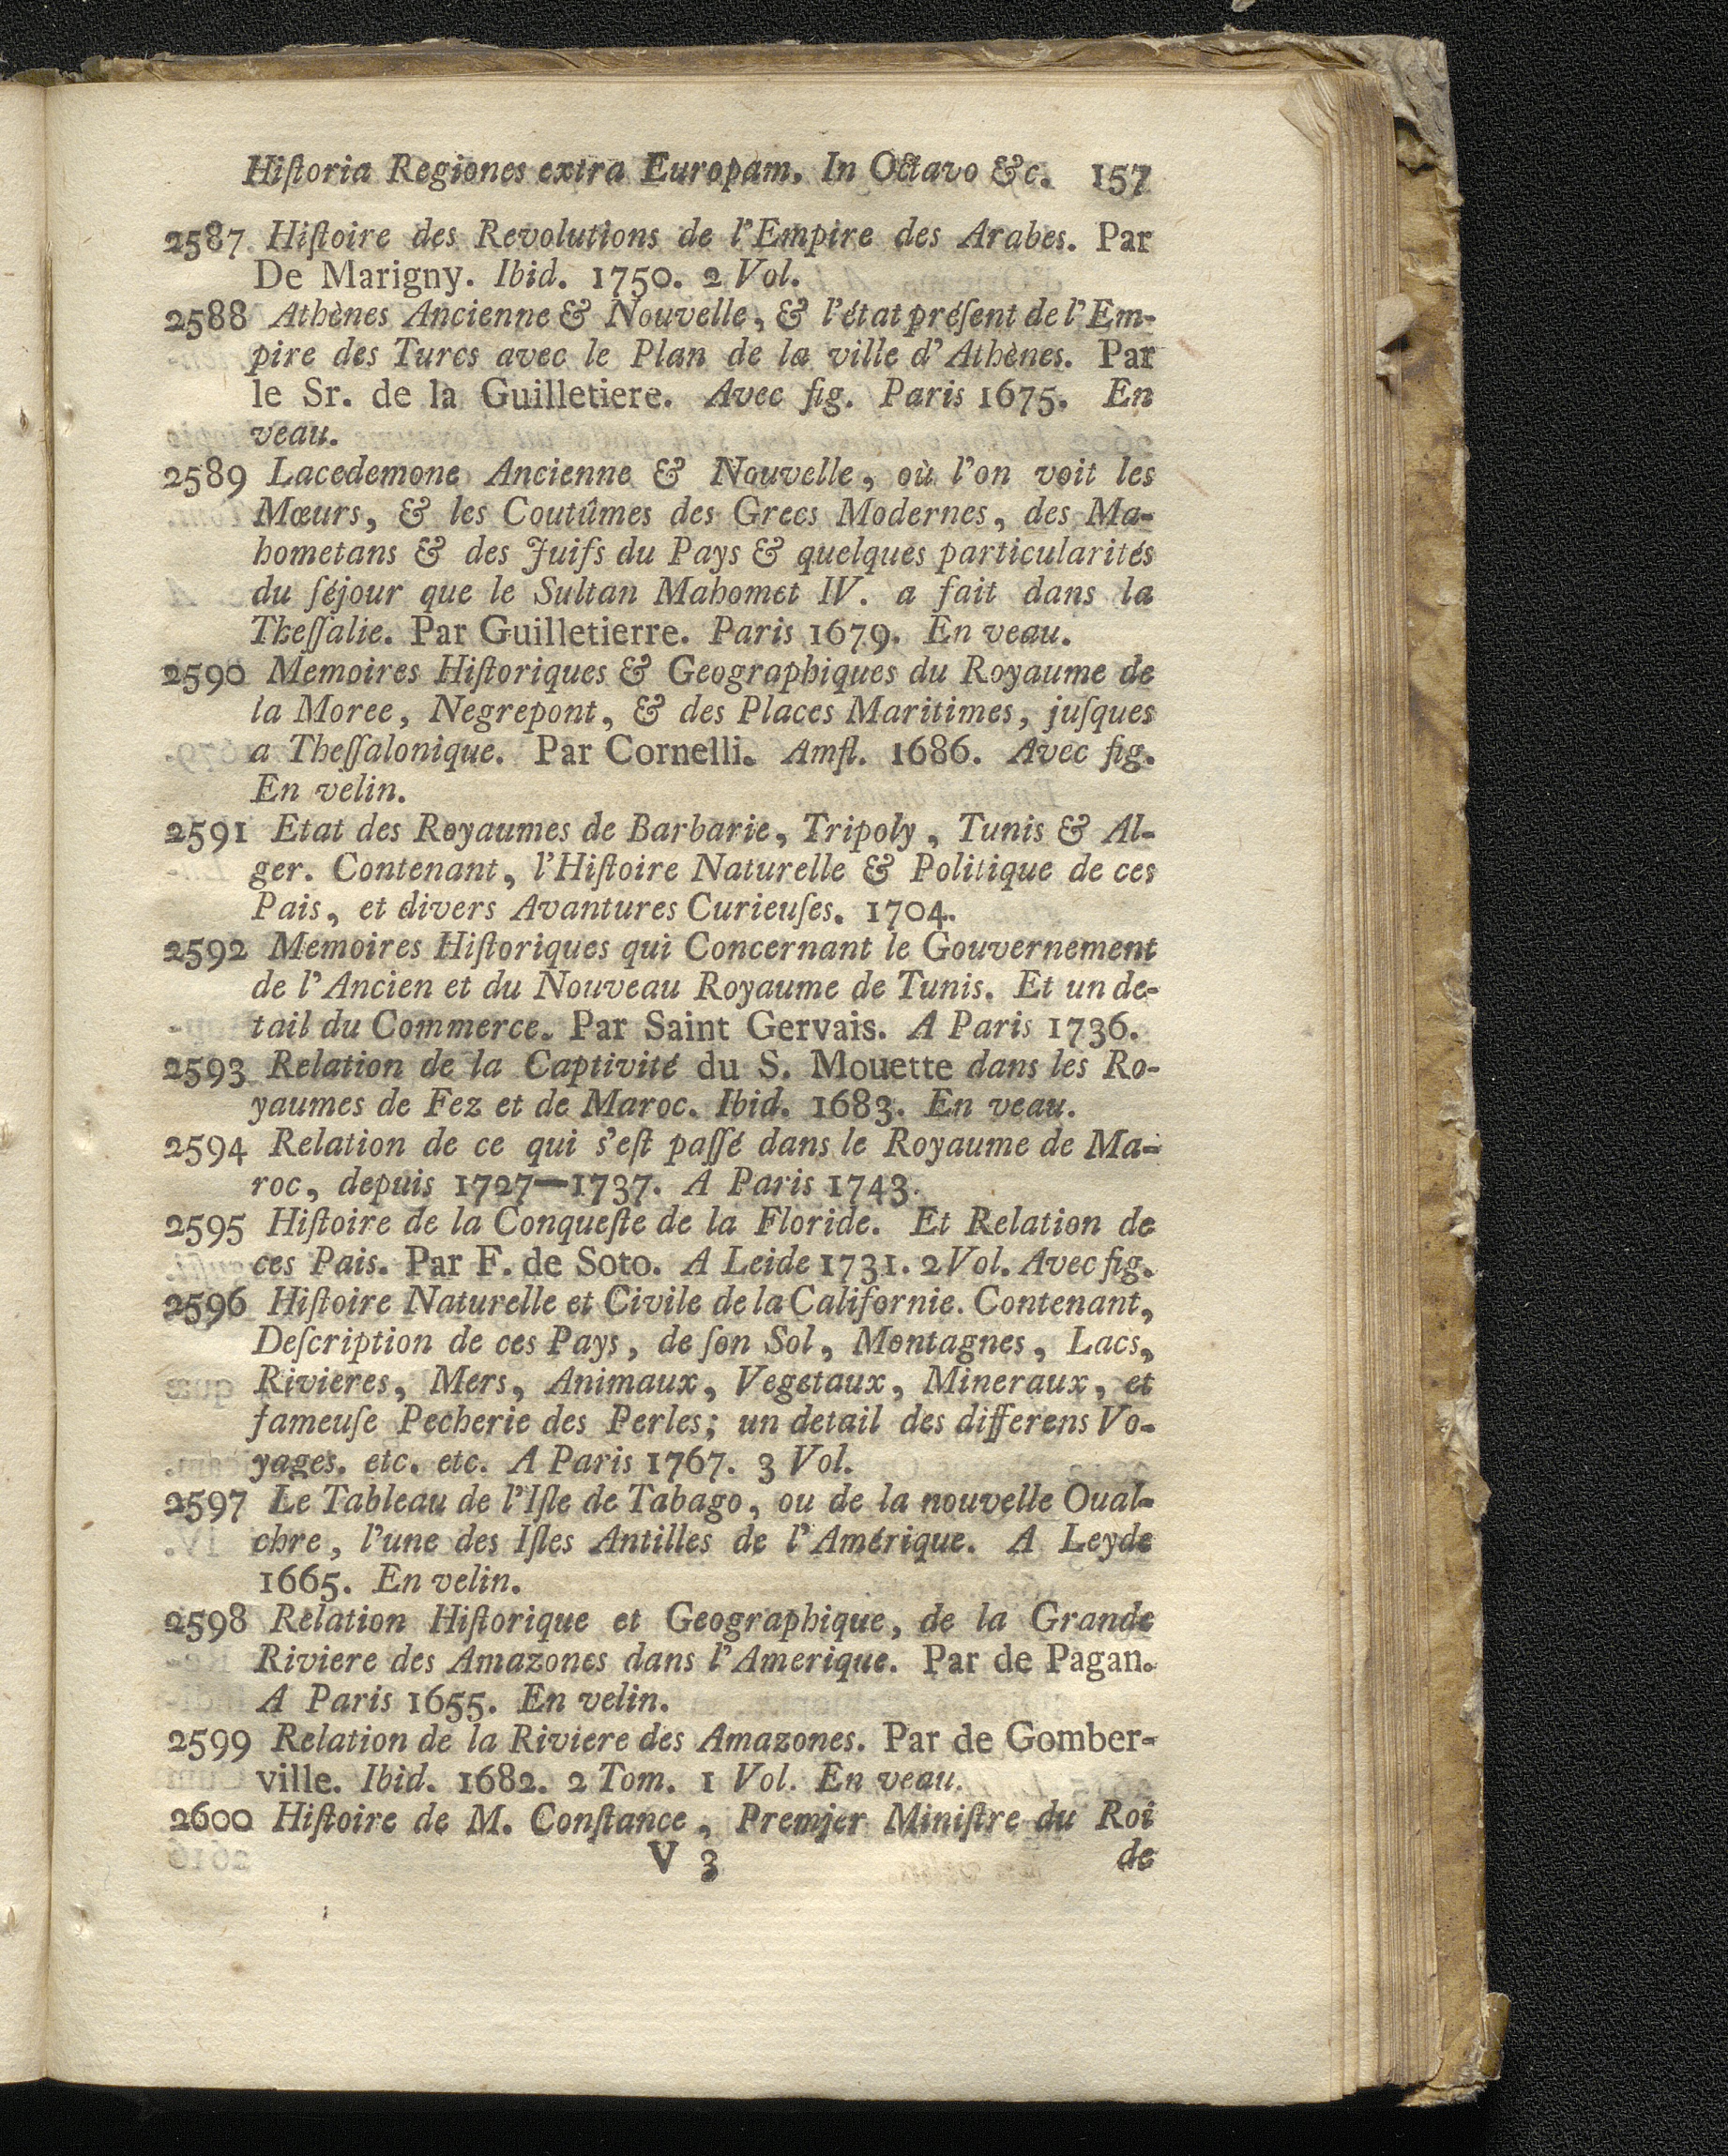 Hiſtoria Regiones extra Europam. In Octavo &c. 157
2587 Hiſtoire des Revolutions de l'Empire des Arabes. Par
De Marigny. Ibid. 1750. 2 Vol.
2588 Athènes Ancienne & Nouvelle, & l'état préſent de l'Em-
pire des Turcs avec le Plan de la ville d'Athènes. Par
le Sr. de la Guilletiere. Avec fig. Paris 1675. En
veau.
2589 Lacedemone Ancienne & Nouvelle, où l'on voit les
Mœurs, & les Coutûmes des Grecs Modernes, des Ma-
hometans & des Juifs du Pays & quelques particularités
du ſéjour que le Sultan Mahomet IV. a fait dans la
Theſſalie. Par Guilletierre. Paris 1679. En veau.
2590 Memoires Hiſtoriques & Geographiques du Royaume de
la Moree, Negrepont, & des Places Maritimes, juſques
a Theſſalonique. Par Cornelli. Amſt. 1686. Avec fig.
En velin.
2591 Etat des Royaumes de Barbarie, Tripoly, Tunis & Al-
ger. Contenant, l'Hiſtoire Naturelle & Politique de ces
Pais, et divers Avantures Curieuſes. 1704.
2592 Memoires Hiſtoriques qui Concernant le Gouvernement
de l'Ancien et du Nouveau Royaume de Tunis. Et un de-
tail du Commerce. Par Saint Gervais. A Paris 1736.
2593 Relation de la Captivité du S. Mouette dans les Ro-
yaumes de Fez et de Maroc. Ibid. 1683. En veau.
2594 Relation de ce qui s'eſt paſſé dans le Royaume de Ma-
roc, depuis 1727—1737. A Paris 1743.
2595 Hiſtoire de la Conqueſte de la Floride. Et Relation de
ces Pais. Par F. de Soto. A Leide 1731. 2 Vol. Avec fig.
2596 Hiſtoire Naturelle et Civile de la Californie. Contenant,
Deſcription de ces Pays, de ſon Sol, Montagnes, Lacs,
Rivieres, Mers, Animaux, Vegetaux, Mineraux, et
fameuſe Pecherie des Perles; un detail des differens Vo-
yages. etc. etc. A Paris 1767. 3 Vol.
2597 Le Tableau de l'Iſle de Tabago, ou de la nouvelle Oual-
chre, l'une des Iſles Antilles de l'Amérique. A Leyde
1665. En velin.
2598 Relation Hiſtorique et Geographique, de la Grande
Riviere des Amazones dans l'Amerique. Par de Pagan.
A Paris 1655. En velin.
2599 Relation de la Riviere des Amazones. Par de Gomber-
ville. Ibid. 1682. 2 Tom. 1 Vol. En veau.
2600 Hiſtoire de M. Conſtance, Premjer Miniſtre du Roi
V 3 de